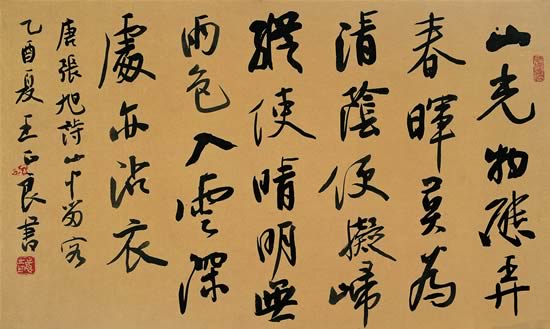 山光物態弄
春暉莫為
清蔭便擬歸
縱使晴明無
雨色入雲深
處亦沾衣
唐張旭詩山中留客
乙酉夏王正良書